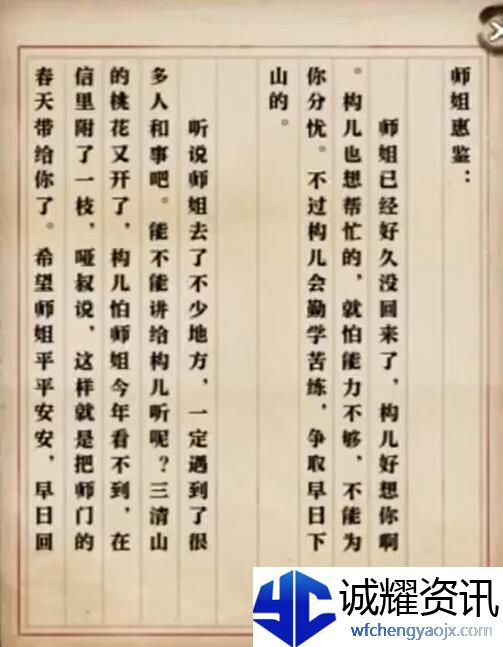 师姐惠鉴：
师姐已经好久没回来了，构儿好想你啊
。构儿也想帮忙的，就怕能力不够，不能为
你分忧。不过构儿会勤学苦练，争取早日下
山的。
听说师姐去了不少地方，一定遇到了很
多人和事吧。能不能讲给构儿听呢？三清山
的桃花又开了，构儿怕师姐今年看不到，在
信里附了一枝，哑叔说，这样就是把师门的
春天带给你了。希望师姐平平安安，早日回
YC
诚耀资讯
wfchengyaojx.com